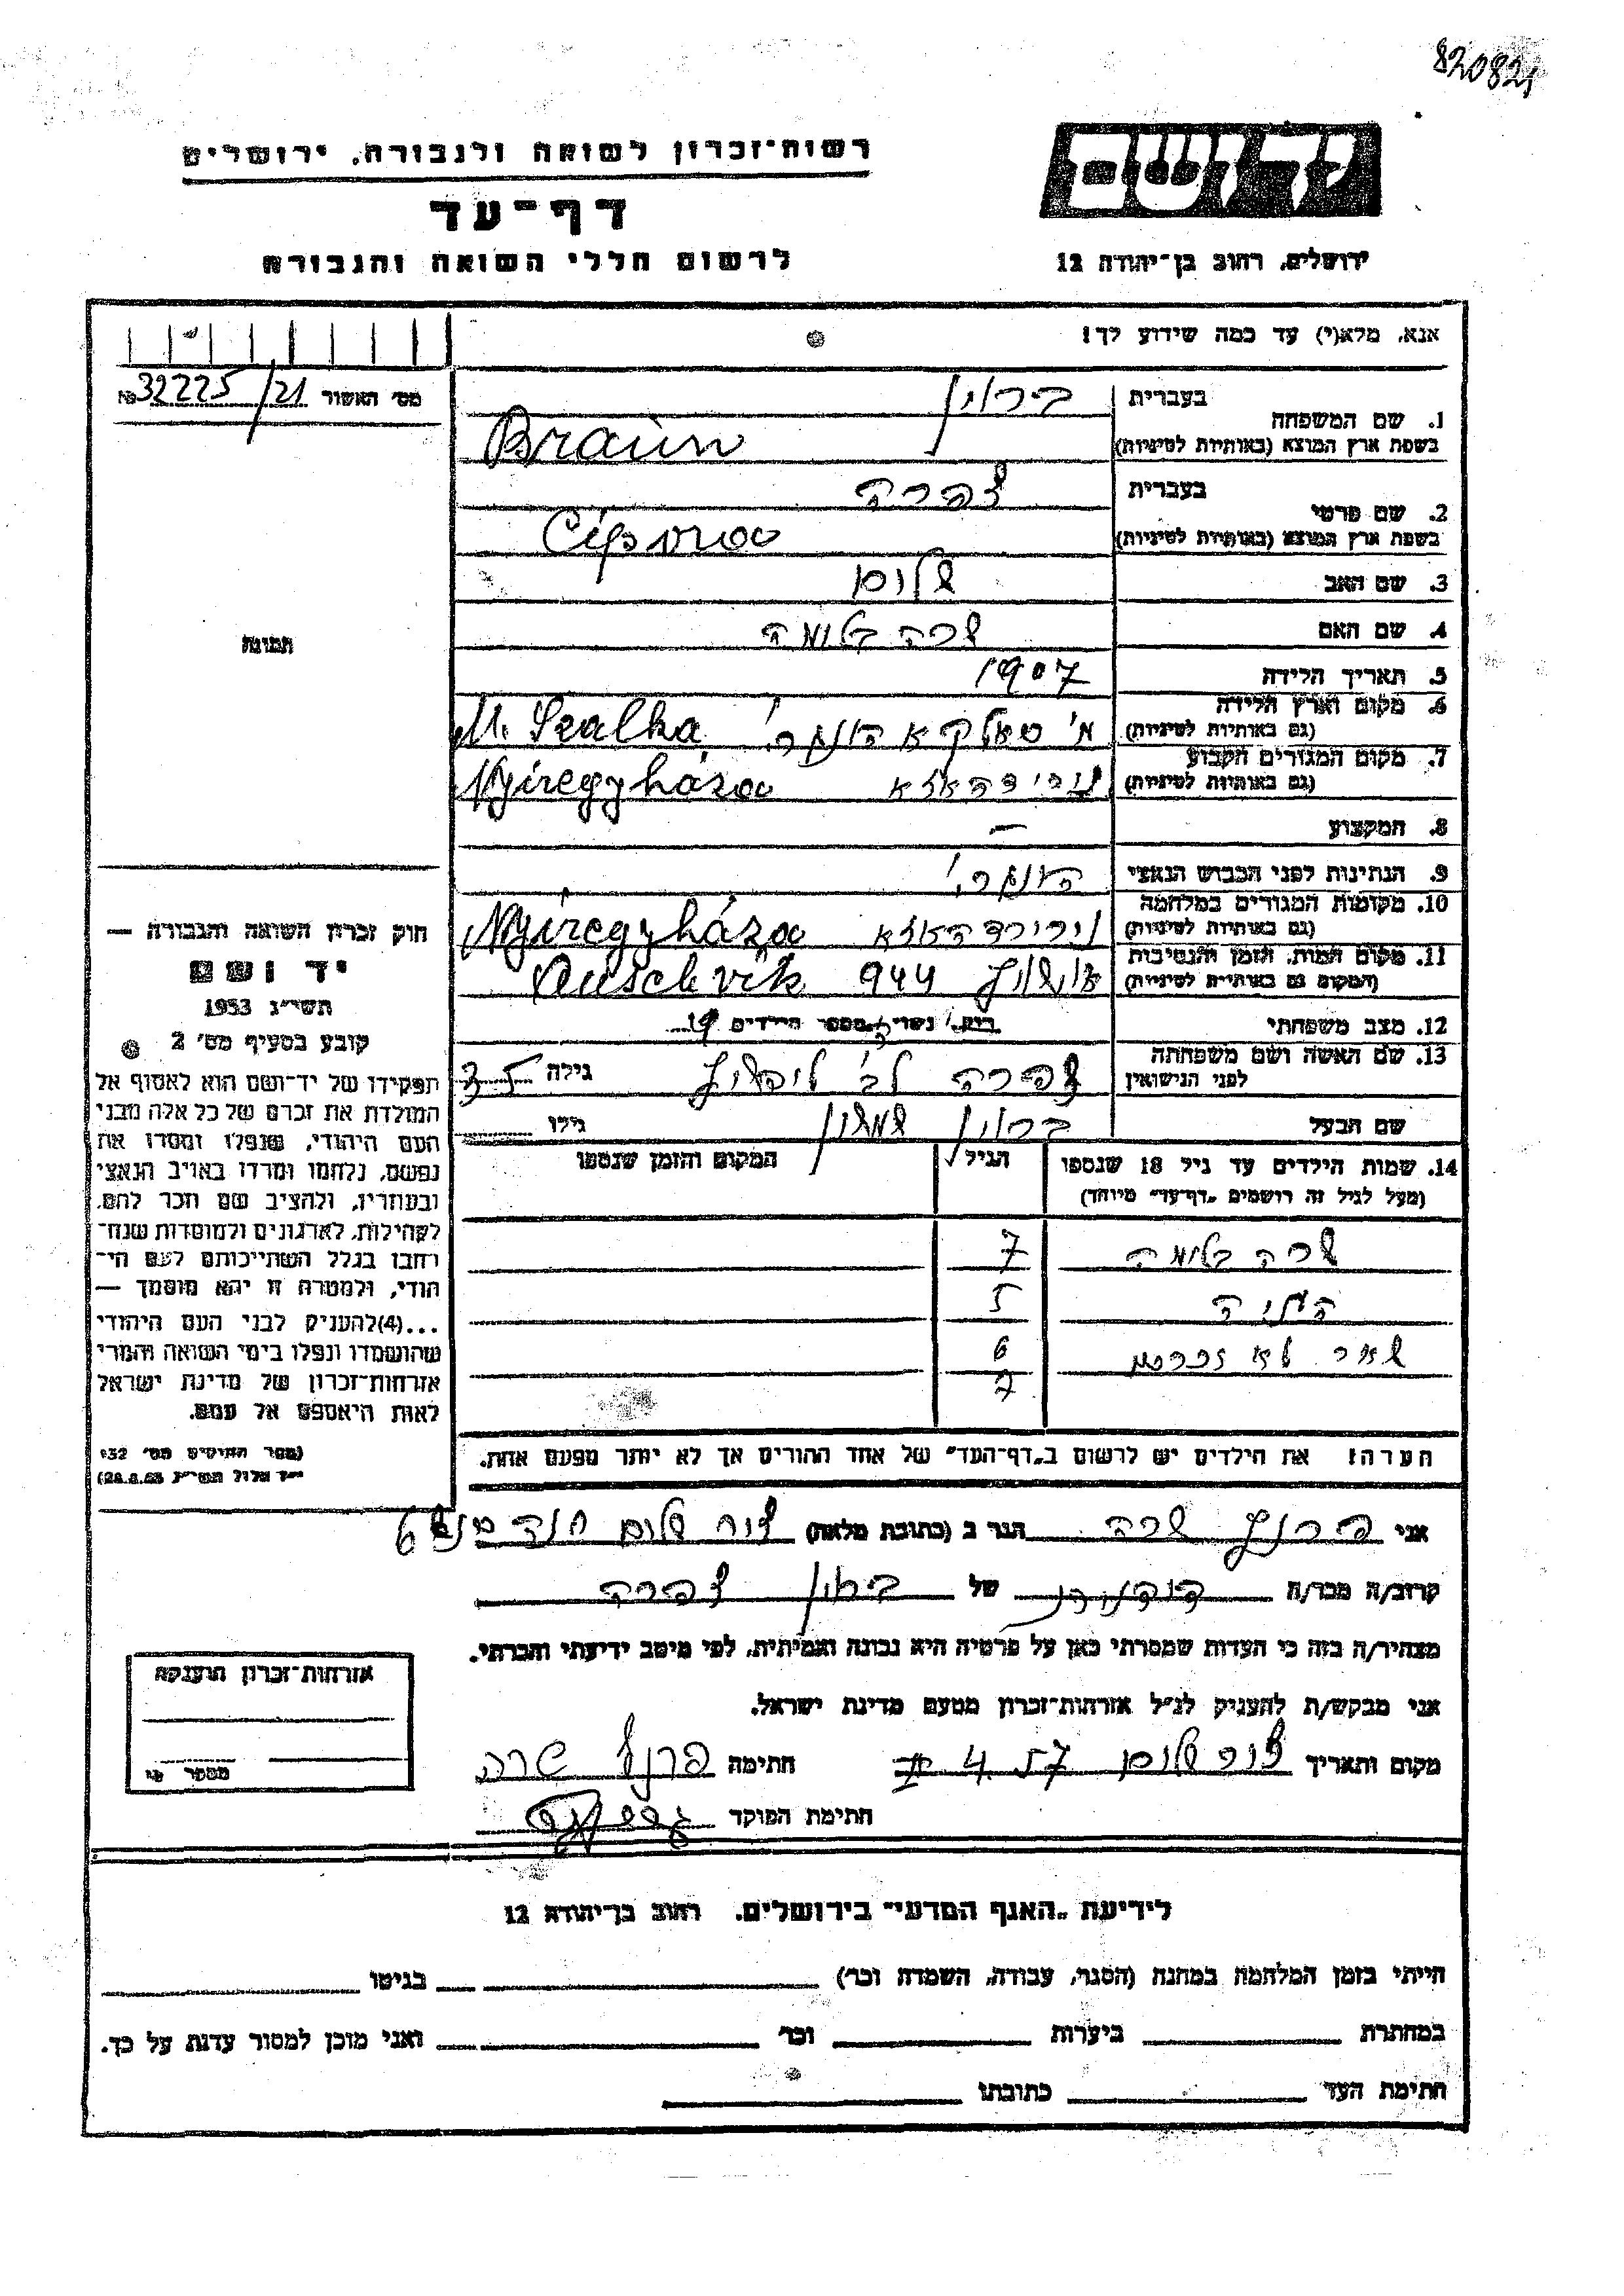 820821
יד ושם
רשות-זכרון לשואה ולגבורה, ירושלים
דף-עד
לרשום חללי השואה והגבורה
ירושלים, רחוב בן-יהודה 12
אנא, מלא(י) עד כמה שידוע לך!
מס' האשור 32225/21 №
1. שם המשפחה
בעברית בראון
בשפת ארץ המוצא (באותיות לטיניות) Braun
2. שם פרטי
בעברית צפרה
בשפת ארץ המוצא (באותיות לטיניות)
3. שם האב שלום
4. שם האם שרה בלומה
5. תאריך הלידה 1907
6. מקום וארץ הלידה
(גם באותיות לטיניות) מ' סאלקא הונגרי M. Szalka
7. מקום המגורים הקבוע
(גם באותיות לטיניות) Nyíregyháza
8. המקצוע —
9. הנתינות לפני הכבוש הנאצי הונגרי
10. מקומות המגורים במלחמה
(גם באותיות לטיניות) Nyíregyháza
11. מקום המות, הזמן והנסיבות
(המקום גם באותיות לטיניות) 944
12. מצב משפחתי נשוי/ה מספר הילדים
13. שם האשה ושם משפחתה
לפני הנישואין צפרה לב' גילה 35
שם הבעל בראון גילו
14. שמות הילדים עד גיל 18 שנספו הגיל המקום והזמן שנספו
(מעל לגיל זה רושמים "דף-עד" מיוחד)
שרה בלומה 7
5
לא 6
2
הערה! את הילדים יש לרשום ב"דף-העד" של אחד ההורים אך לא יותר מפעם אחת.
תמונה
חוק זכרון השואה והגבורה —
יד ושם
תשי"ג 1953
קובע בסעיף מס' 2
תפקידו של יד-ושם הוא לאסוף אל
המולדת את זכרם של כל אלה מבני
העם היהודי, שנפלו ומסרו את
נפשם, נלחמו ומרדו באויב הנאצי
ובעוזריו, ולהציב שם וזכר להם,
לקהילות, לארגונים ולמוסדות שנח-
רבו בגלל השתייכותם לעם הי-
הודי, ולמטרה זו יהא מוסמך —
...(4)להעניק לבני העם היהודי
שהושמדו ונפלו בימי השואה והמרי
אזרחות-זכרון של מדינת ישראל
לאות היאספם אל עמם.
(ספר החוקים מס' 132
י"ז אלול תשי"ג 28.8.53)
אני שרה הגר ב (כתובת מלאה) צור שלום
קרוב/ה מכר/ה של צפרה
מצהיר/ה בזה כי העדות שמסרתי כאן על פרטיה היא נכונה ואמיתית, לפי מיטב ידיעתי והכרתי.
אני מבקש/ת להעניק לנ"ל אזרחות-זכרון מטעם מדינת ישראל.
מקום ותאריך צור שלום 4.57 חתימה שרה
חתימת הפוקד
אזרחות-זכרון הוענקה
מספר
לידיעת "האגף המדעי" בירושלים, רחוב בן-יהודה 12
הייתי בזמן המלחמה במחנה (הסגר, עבודה, השמדה וכו') בגיטו
במחתרת ביערות וכו' ואני מוכן למסור עדות על כך.
חתימת העד כתובתו